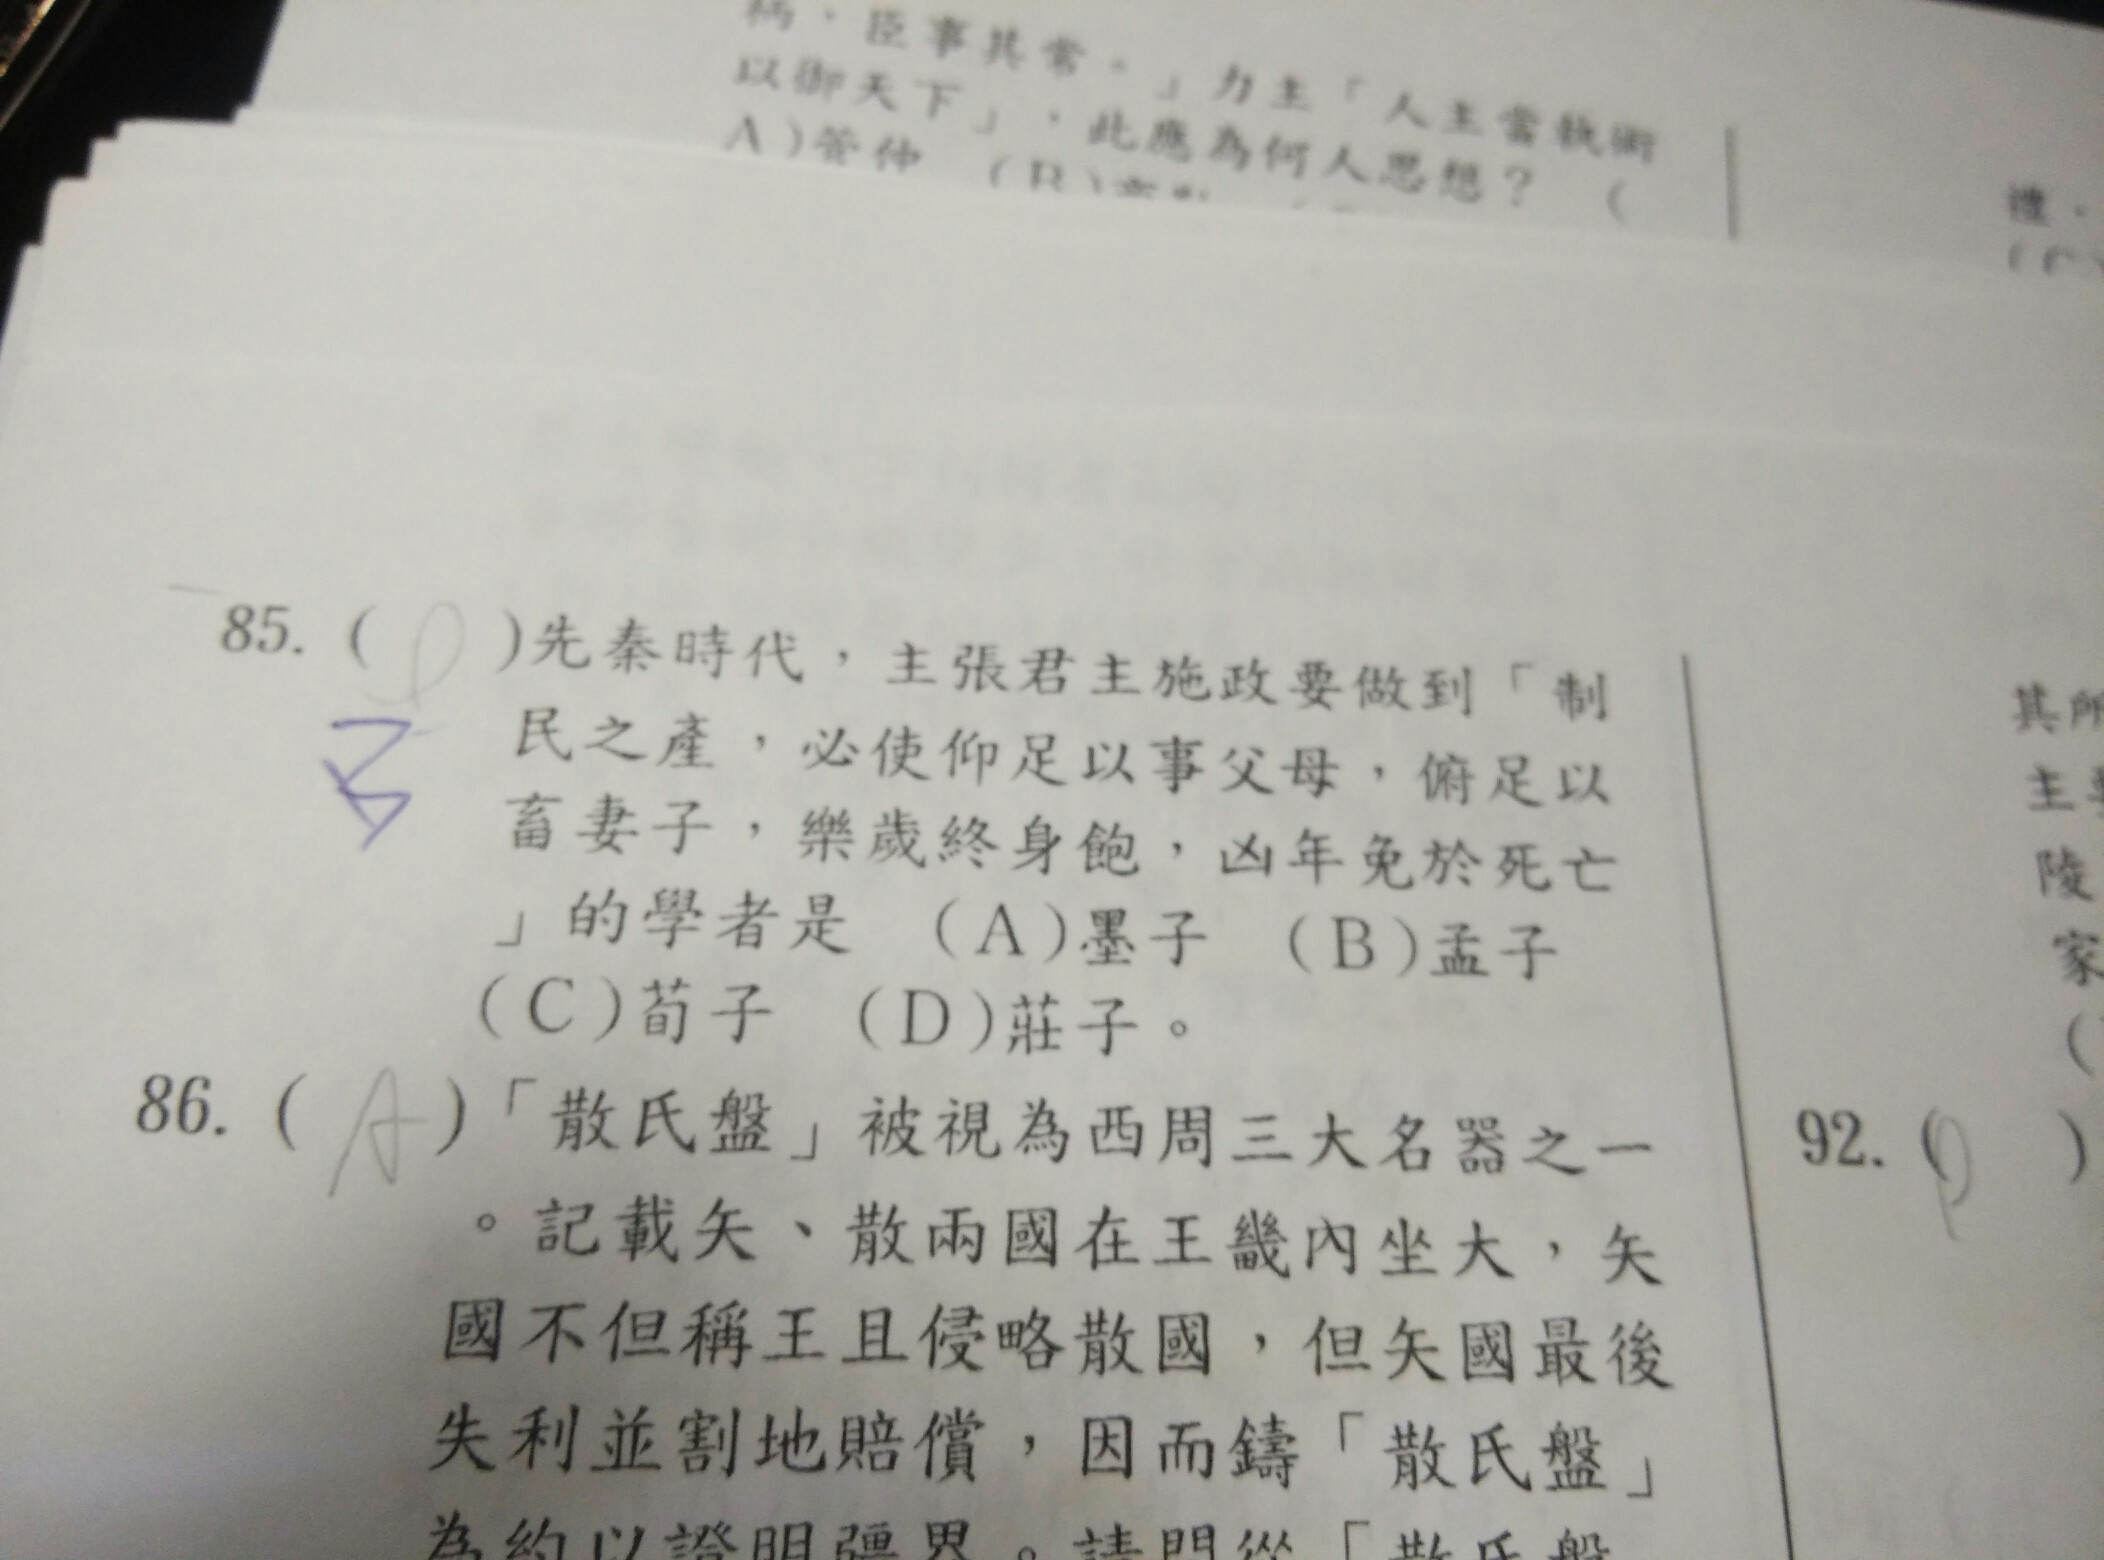 柄，臣事其常。」力主「人主當執術
以御天下」，此應為何人思想？ (
A)管仲 (B)
禮、
85. ( )先秦時代，主張君主施政要做到「制
民之產，必使仰足以事父母，俯足以
畜妻子，樂歲終身飽，凶年免於死亡
」的學者是 (A)墨子 (B)孟子
(C)荀子 (D)莊子。
B
86. ( A )「散氏盤」被視為西周三大名器之一
。記載矢、散兩國在王畿內坐大，矢
國不但稱王且侵略散國，但矢國最後
失利並割地賠償，因而鑄「散氏盤」
為約以證明疆界。請問從「散氏盤
其所
主要
陵
家
(
92. ( )